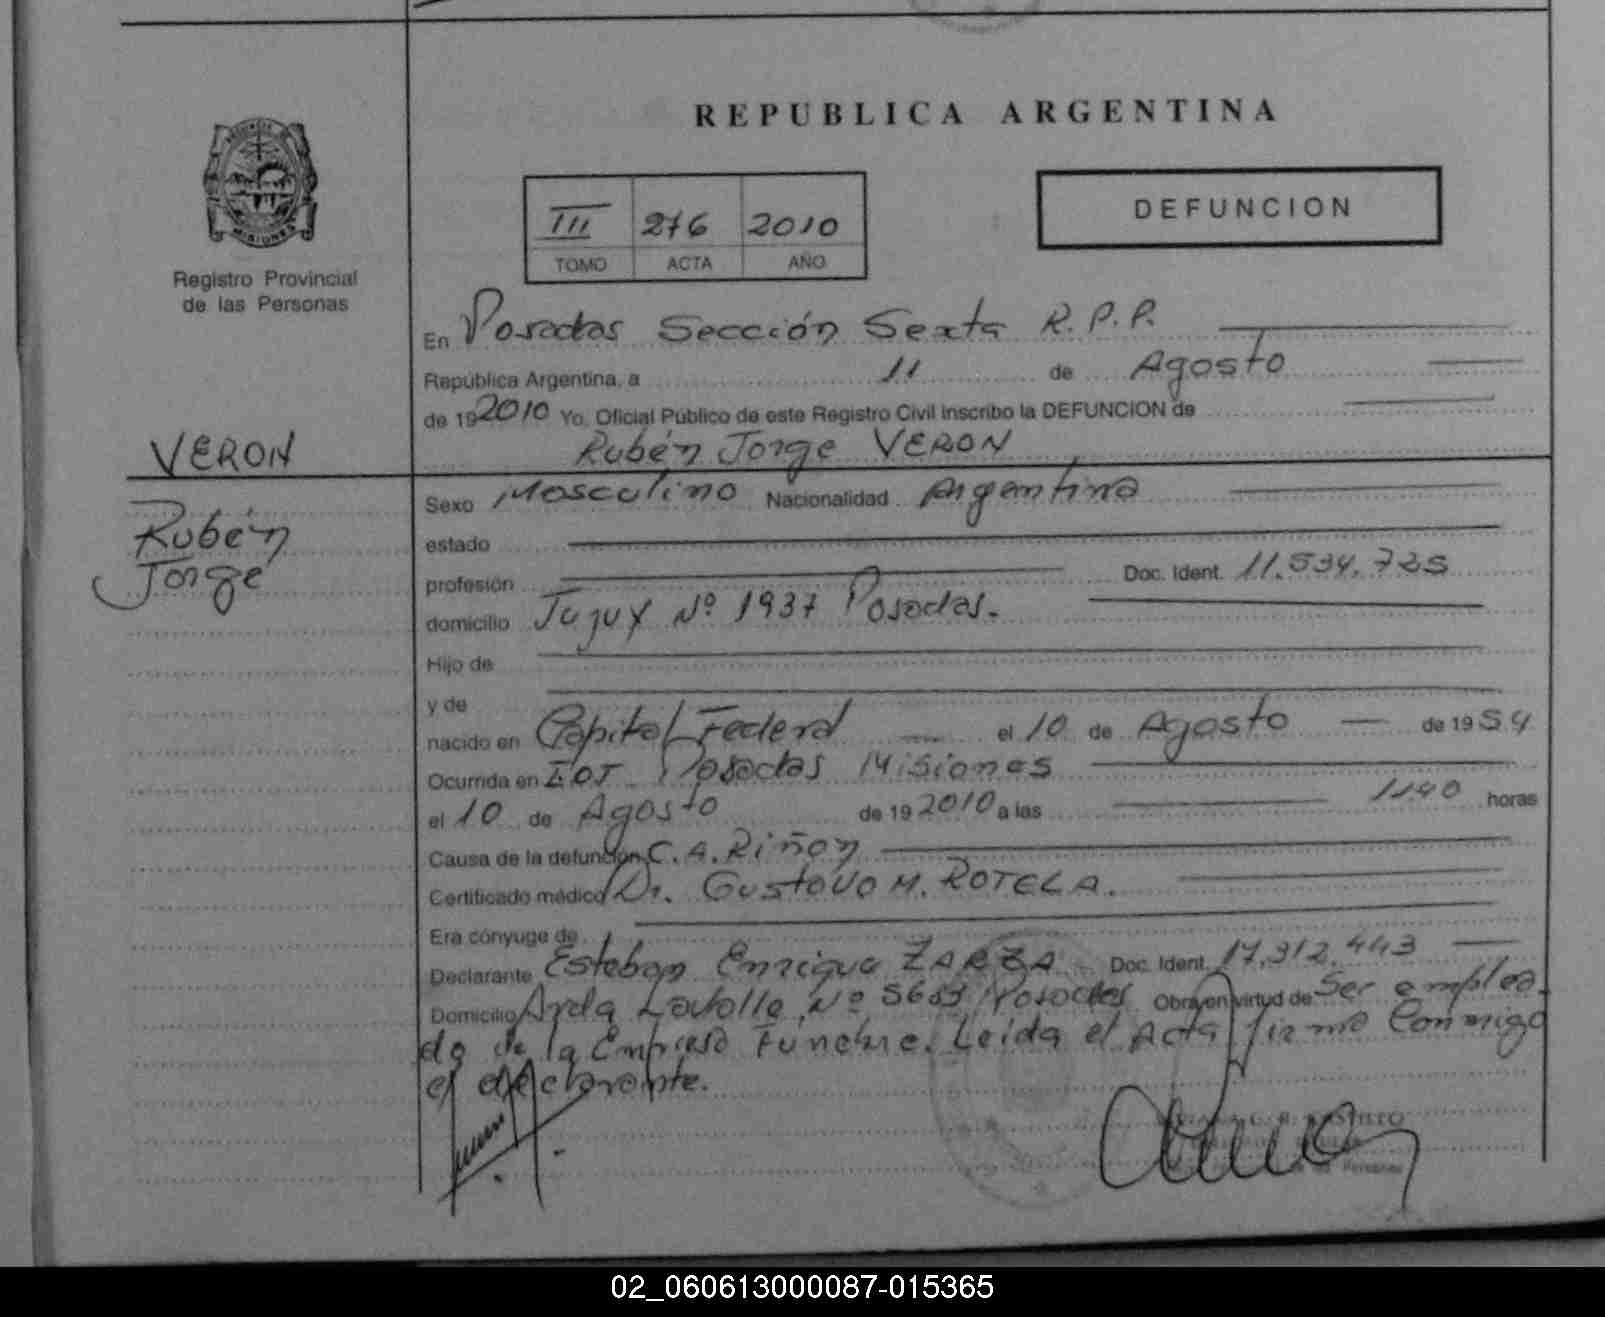 REPUBLICA ARGENTINA
III 276 2010
TOMO ACTA AÑO
DEFUNCION
MISIONES
Registro Provincial
de las Personas
VERON
Rubén
Jorge
En Posadas Sección Sexta R.P.P.
República Argentina, a 11 de Agosto
de 19 2010 Yo, Oficial Público de este Registro Civil inscribo la DEFUNCION de
Rubén Jorge VERON
Sexo Masculino Nacionalidad Argentina
estado
profesión Doc. Ident. 11.534.725
domicilio Jujuy Nº 1937 Posadas.
Hijo de
y de
nacido en Capital Federal el 10 de Agosto de 19 54
Ocurrida en Posadas Misiones
el 10 de Agosto de 19 2010 a las 11.40 horas
Causa de la defunción C.A. Riñon
Certificado médico Dr. Gustavo M. ROTELA.
Era cónyuge de
Declarante Esteban Enrique ZARZA Doc. Ident. 17.312.443
Domicilio Avda Nº Posadas Obra en virtud de Ser emplea-
do de la Empresa Funebre. Leida el Acta firma Conmigo
el declarante.
02_060613000087-015365